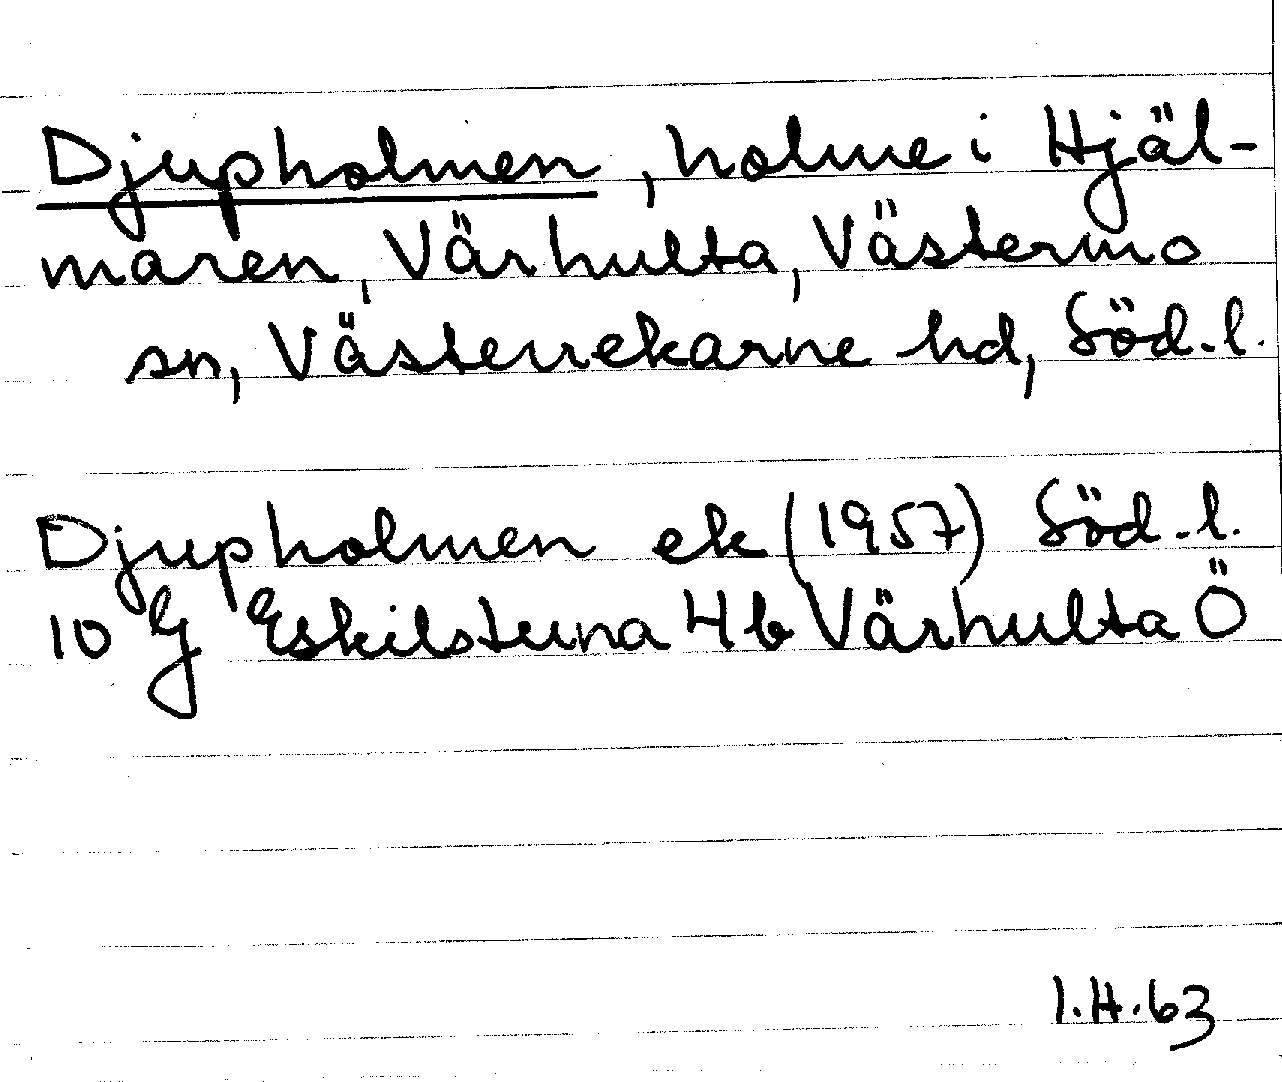 Djupholmen, holme i Hjäl-
maren, Värhulta, Västermo
sn, Västerrekarne hd, Söd.l.
Djupholmen ek (1957) Söd.l.
10 G Eskilstuna 4b Värhulta Ö
I.H.63